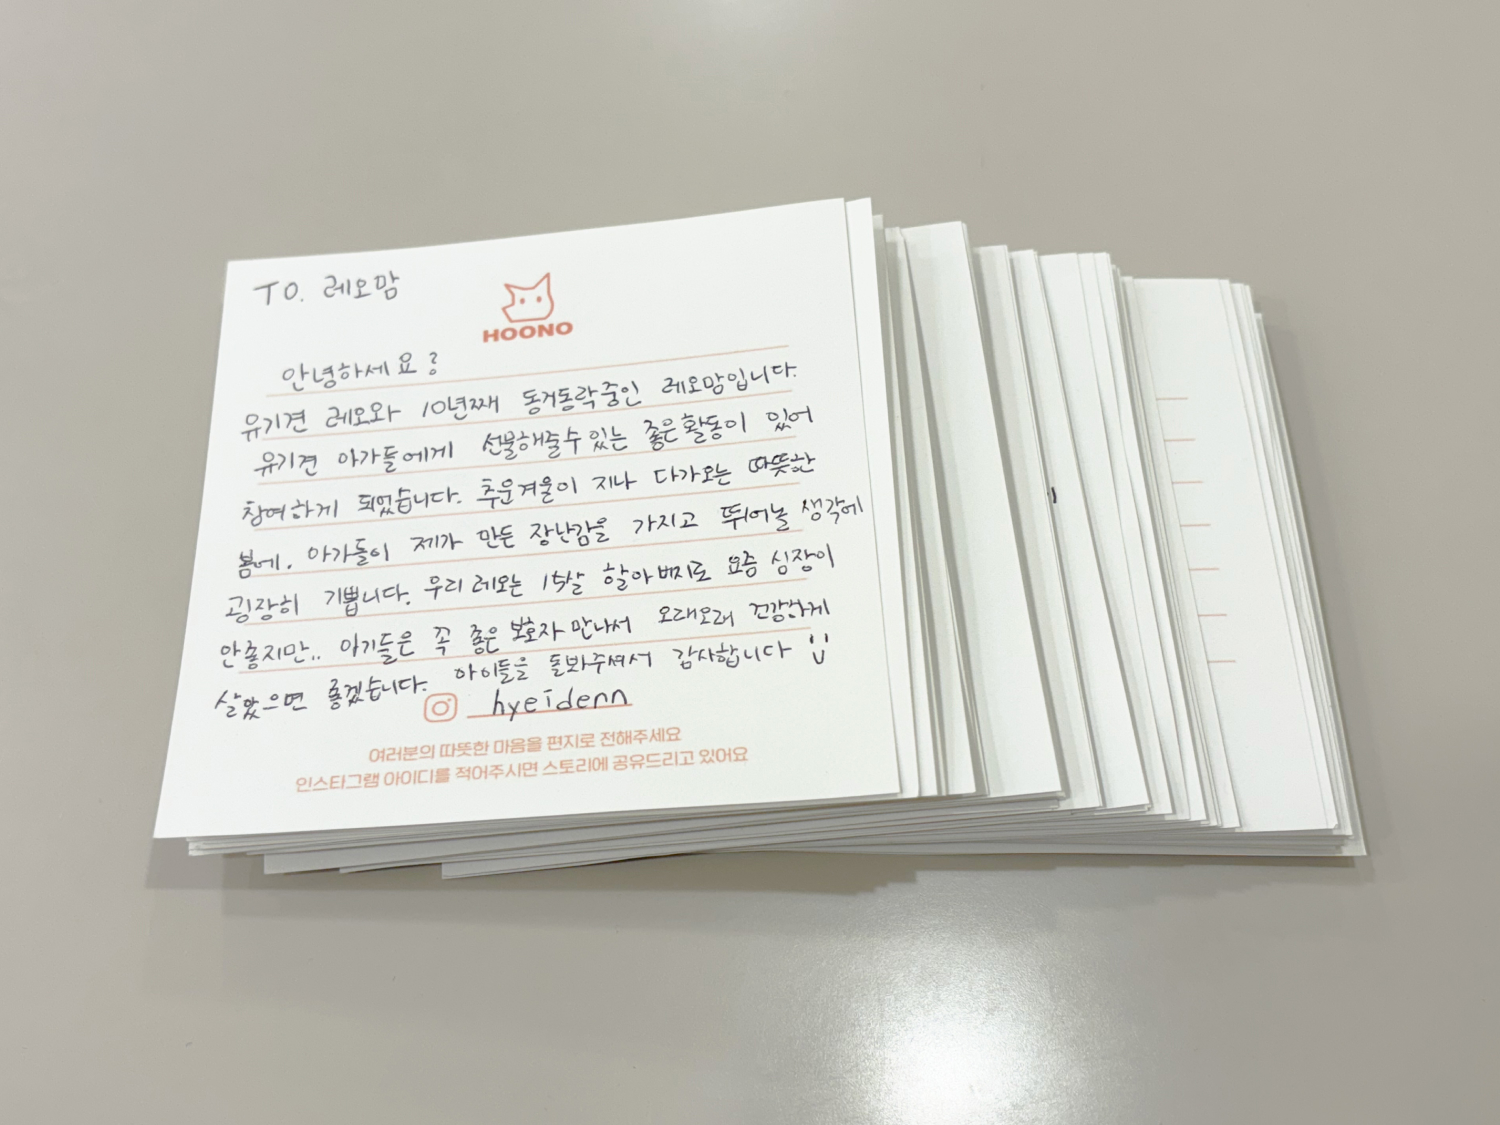 TO. 레오맘
HOONO
안녕하세요?
유기견 레오와 10년째 동거동락중인 레오맘입니다.
유기견 아가들에게 선물해줄수있는 좋은활동이 있어
참여하게 되었습니다. 추운겨울이 지나 다가오는 따뜻한
봄에. 아가들이 제가 만든 장난감을 가지고 뛰어놀 생각에
굉장히 기쁩니다. 우리 레오는 15살 할아버지로 요즘 심장이
안좋지만.. 아기들은 꼭 좋은 보호자 만나서 오래오래 건강하게
살았으면 좋겠습니다. 아이들을 돌봐주셔서 감사합니다 :)
hyeidenn
여러분의 따뜻한 마음을 편지로 전해주세요
인스타그램 아이디를 적어주시면 스토리에 공유드리고 있어요